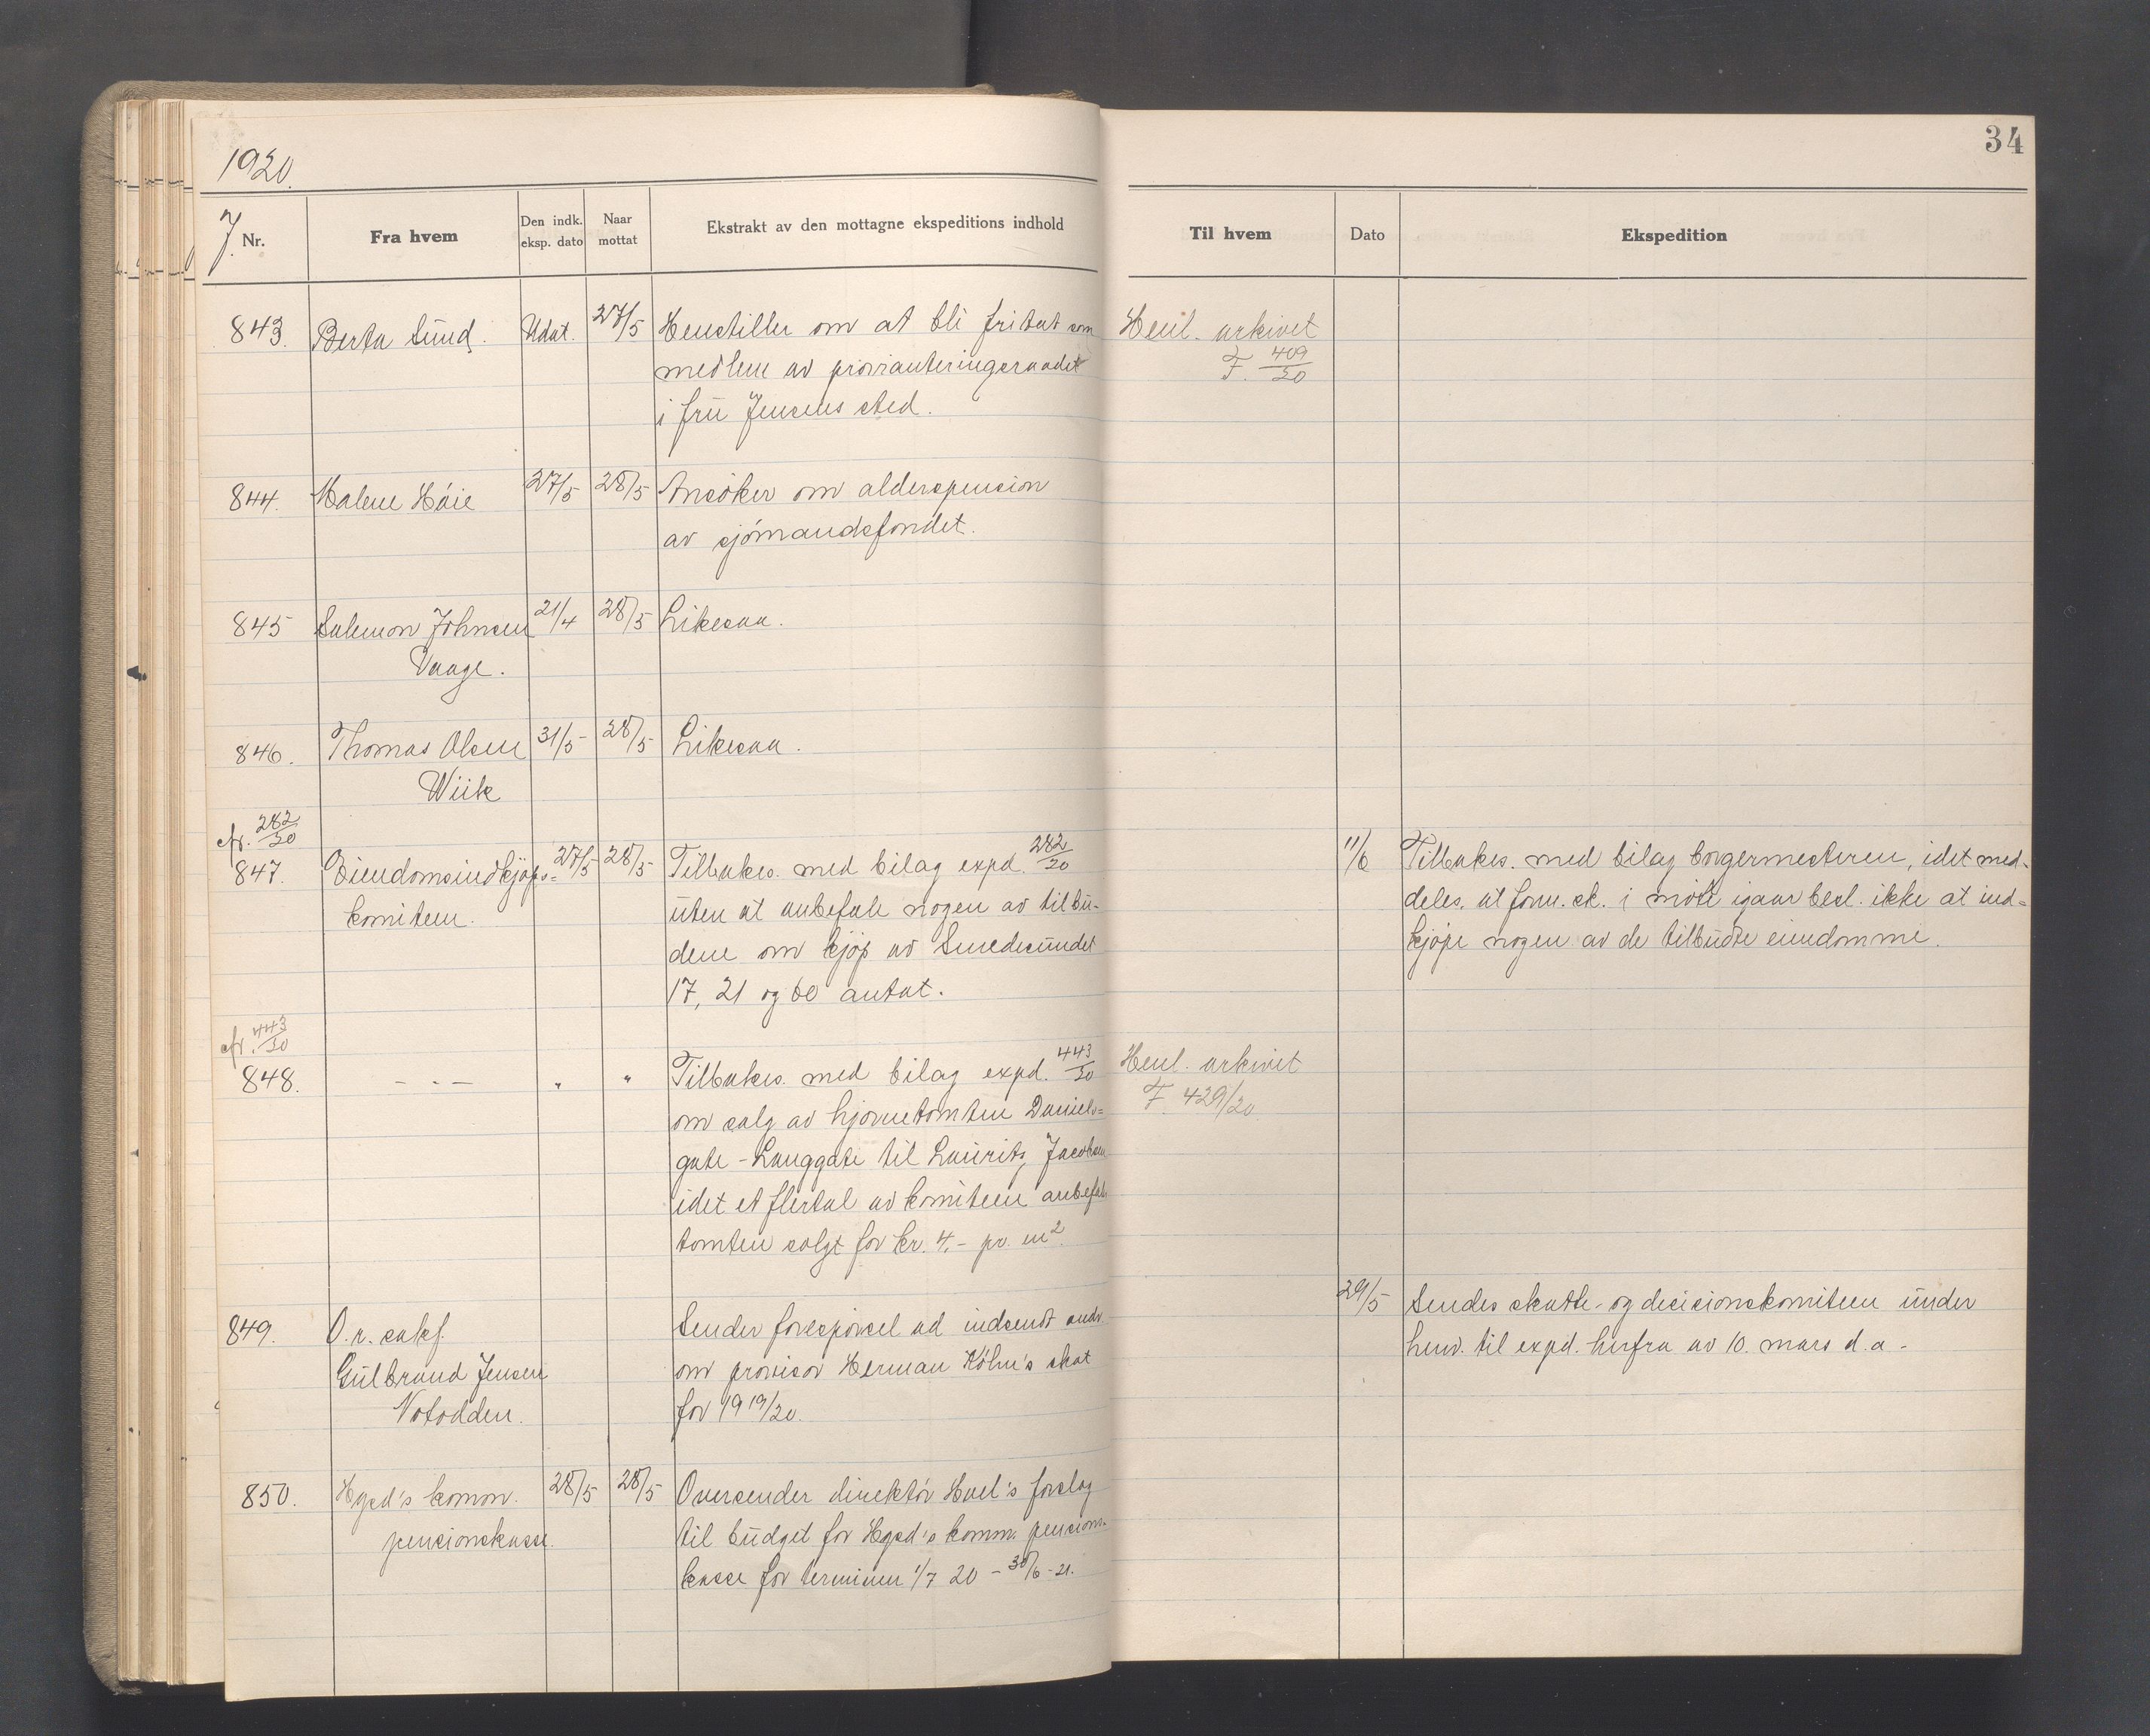 1920.
34
J. Nr.
Fra hvem
Den indk. eksp. dato
Naar mottat
Ekstrakt av den mottagne ekspeditions indhold
Til hvem
Dato
Ekspedition
843. Berta Sund. Udat. 27/5 Henstiller om at bli fritat som
medlem av provianteringsraadet
i fru Jensens sted.
Henl. arkivet
F. 409/20
844. Malene Høie 27/5 28/5 Ansøker om alderspension
av sjømandsfondet.
845 Salemon Johnsen 21/4 28/5 Likesaa.
Vaage.
846. Thomas Olsen 31/5 28/5 Likesaa.
Wiik
cfr. 282/20
847. Eiendomsindkjøps- 27/5 28/5 Tilbakes. med bilag expd. 282/20
komiteen.
uten at anbefale nogen av tilbu-
dene om kjøp av Smedesundet
17, 21 og 60 antat.
11/6 Tilbakes. med bilag borgermesteren, idet med-
deles, at form.sk. i møte igaar besl. ikke at ind-
kjøpe nogen av de tilbudte eiendomme.
cfr. 443/20
848. – " – " " Tilbakes. med bilag expd. 443/20
om salg av hjørnetomten Daniels-
gate - Langgate til Laurits Jacobsen
idet et flertal av komiteen anbefal.
tomten solgt for kr. 4.- pr. m2.
Henl. arkivet
F. 429/20
849. O.r. sakf.
Gulbrand Jensen
Notodden.
Sender forespørsel ad indsendt andr.
om provisor Herman Köhn's skat
for 1919/20.
29/5 Sendes skatte- og decisionskomiteen under
henv. til expd. herfra av 10. mars d.a.
850. Hgsd's komm. 28/5 28/5 Oversender direktør Hvel's forslag
pensionskasse.
til budget for Hgsd's komm. pensions-
kasse for terminen 1/7 20 - 30/6 - 21.